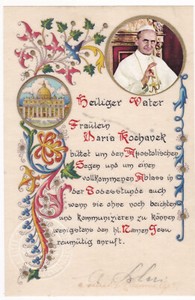 Heiliger Vater
Fräulein
Maria Kochanek
bittet um den Apostolischen
Segen und um einen
vollkommenen Ablass in
der Todesstunde auch
wenn sie ohne noch beichten
und kommunizieren zu können
wenigstens den hl. Namen Jesu
reumütig anruft.